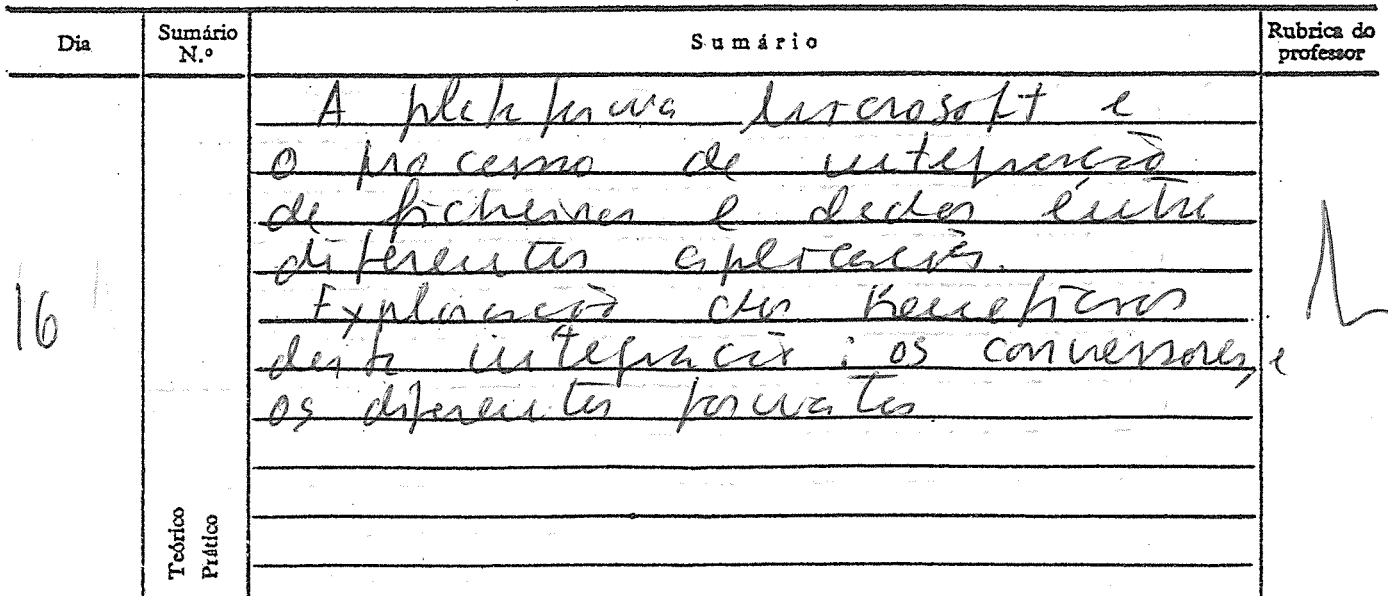 Dia
Sumário N.º
Sumário
Rubrica do professor
16
A plataforma Microsoft e
o processo de integração
de ficheiros e dados entre
diferentes aplicações.
Exploração dos benefícios
desta integração: os conversores, e
os diferentes formatos
Teórico
Prático